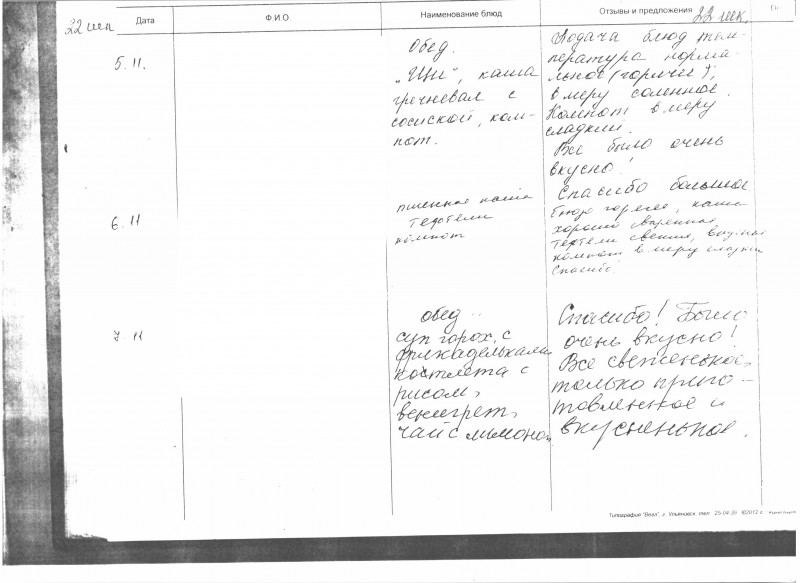 22 шк
Дата
Ф.И.О.
Наименование блюд
Отзывы и предложения
22 шк.
5. 11.
Обед.
"Щи", каша
гречневая с
сосиской, ком-
пот.
Подача блюд тем-
пература норма-
льное (горячее),
в меру соленное.
Компот в меру
сладкий.
Все было очень
вкусно!
6. 11
пшенная каша
тефтели
компот
Спасибо большое
блюдо горячее, каша
хорошо сваренная
тефтели свежие, вкусные
компот в меру сладкий
Спасибо!
7 11
обед..
суп горох. с
фрикадельками
костлета с
рисом,
венегрет,
чай с лимоном
Спасибо! Было
очень вкусно!
Все свеженькое,
только приго-
товленное и
вкусненькое.
Типография "Вега", г. Ульяновск тел. 25-04-39 ©2012 г.